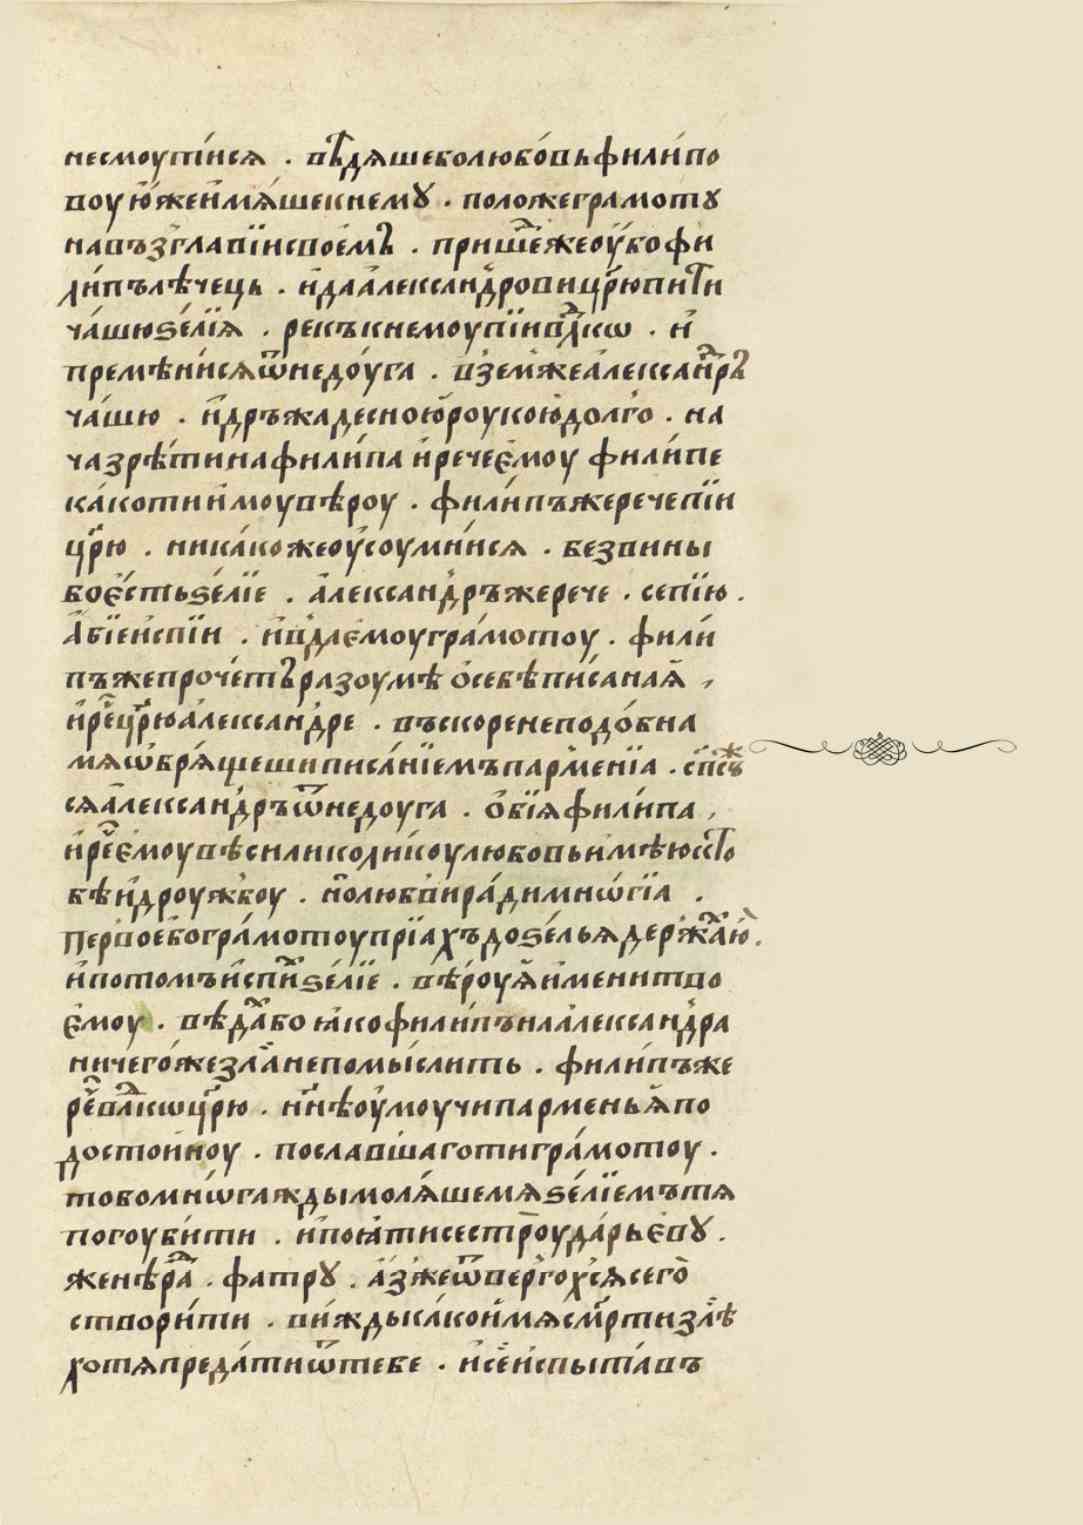 несмоути́нсѧ . вѣдѧшеболюбо́вьфили́по
воую́женмѧ́шекнемꙋ . положеграмотꙋ
навъзглавїисвое́мъ . пришеⷣжеоу́бофи
ли́пълѣчець . и҆даа҆лександровицр҃юпити
ча́шюѕе́лїѧ . рекъкнемоупїивлⷣкѡ . и҆
премѣни́сѧѿнедо́уга . вземжеа҆леѯанⷣръ
ча́шю . и҆дръжадесноюроукоюдолго . на
чазрѣ́тинафили́па и҆речеє҆моу фили́пе
ка́котиимоувѣроу . фили́пъжеречепїи
цр҃ю . ника́кожеоу҆соумни́сѧ . безвины
боє҆́стьѕе́лїе . а҆лександръжерече . сепїю .
а҆бїеи҆спїи . и҆вдає҆моугра́мотоу . фили́
пъжепроче́търазоумѣ о҆себѣпи́санаѧ ,
и҆реⷱ҇цр҃юа҆лександре . въскоренеподо́бна
мѧѡ҆брѧ́щешиписа́нїемъпарменїа . сп҃съ
сѧа҆лександръѿнедоуга . о҆бїѧфили́па ,
и҆реⷱ҇є҆моувѣсилико́лико́улюбовьимѣюкто
бѣи҆дроужбоу . и҆полюбвира́димнѡ́гїа .
первоебогра́мотоупрїахъдоѕельѧдержаⷧ҇ю .
и҆потомъи҆спиⷯѕе́лїе . вѣ́роуѧ҆и҆менитво
є҆моу . вѣдаⷯбо ꙗ҆кофили́пънаа҆лександра
ничего́жезла̀непомы́слить . фили́пъже
реⷱ҇влⷣкѡцр҃ю . нн҃ѣоу҆моучипарменьѧ҆по
достоиноу . послав́шаготигра́мотоу .
тобомнѡ́гаждымолѧ́шемѧѕе́лїемътѧ
погоуби́ти . и҆поꙗ҆тисестроуда́рьєвꙋ .
женѣраⷨ . фатрꙋ . а҆́зжеѿвергохсѧсего̀
створи́ти . ви́ждыка́коимѧсмр҃тизлѣ
хотѧпреда́тиѿтебе . и҆се́и҆спыта́въ